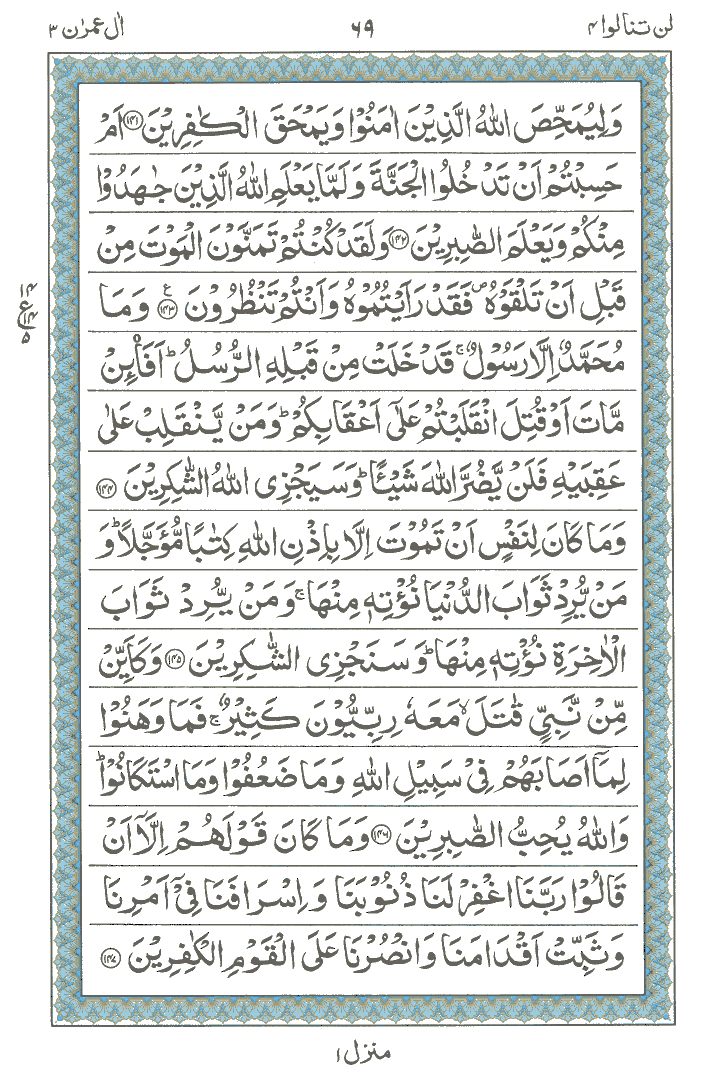 لن تنالوا ۴ ۶۹ اٰل عمرٰن ۳
وَلِيُمَحِّصَ اللّٰهُ الَّذِيْنَ اٰمَنُوْا وَيَمْحَقَ الْكٰفِرِيْنَ ۝۱۴۱ اَمْ
حَسِبْتُمْ اَنْ تَدْخُلُوا الْجَنَّةَ وَلَمَّا يَعْلَمِ اللّٰهُ الَّذِيْنَ جٰهَدُوْا
مِنْكُمْ وَيَعْلَمَ الصّٰبِرِيْنَ ۝۱۴۲ وَلَقَدْ كُنْتُمْ تَمَنَّوْنَ الْمَوْتَ مِنْ
قَبْلِ اَنْ تَلْقَوْهُ ۪ فَقَدْ رَاَيْتُمُوْهُ وَاَنْتُمْ تَنْظُرُوْنَ ۝۱۴۳ ع وَمَا
۱۴ ع ۱۴ ۵
مُحَمَّدٌ اِلَّا رَسُوْلٌ ۚ قَدْ خَلَتْ مِنْ قَبْلِهِ الرُّسُلُ ؕ اَفَا۟ئِنْ
مَّاتَ اَوْ قُتِلَ انْقَلَبْتُمْ عَلٰٓى اَعْقَابِكُمْ ؕ وَمَنْ يَّنْقَلِبْ عَلٰى
عَقِبَيْهِ فَلَنْ يَّضُرَّ اللّٰهَ شَيْـًٔا ؕ وَسَيَجْزِى اللّٰهُ الشّٰكِرِيْنَ ۝۱۴۴
وَمَا كَانَ لِنَفْسٍ اَنْ تَمُوْتَ اِلَّا بِاِذْنِ اللّٰهِ كِتٰبًا مُّؤَجَّلًا ؕ وَ
مَنْ يُّرِدْ ثَوَابَ الدُّنْيَا نُؤْتِهٖ مِنْهَا ۚ وَمَنْ يُّرِدْ ثَوَابَ
الْاٰخِرَةِ نُؤْتِهٖ مِنْهَا ؕ وَسَنَجْزِى الشّٰكِرِيْنَ ۝۱۴۵ وَكَاَيِّنْ
مِّنْ نَّبِيٍّ قٰتَلَ ۙ مَعَهٗ رِبِّيُّوْنَ كَثِيْرٌ ۚ فَمَا وَهَنُوْا
لِمَاۤ اَصَابَهُمْ فِيْ سَبِيْلِ اللّٰهِ وَمَا ضَعُفُوْا وَمَا اسْتَكَانُوْا ؕ
وَاللّٰهُ يُحِبُّ الصّٰبِرِيْنَ ۝۱۴۶ وَمَا كَانَ قَوْلَهُمْ اِلَّاۤ اَنْ
قَالُوْا رَبَّنَا اغْفِرْ لَنَا ذُنُوْبَنَا وَاِسْرَافَنَا فِيْۤ اَمْرِنَا
وَثَبِّتْ اَقْدَامَنَا وَانْصُرْنَا عَلَى الْقَوْمِ الْكٰفِرِيْنَ ۝۱۴۷
منزل ۱